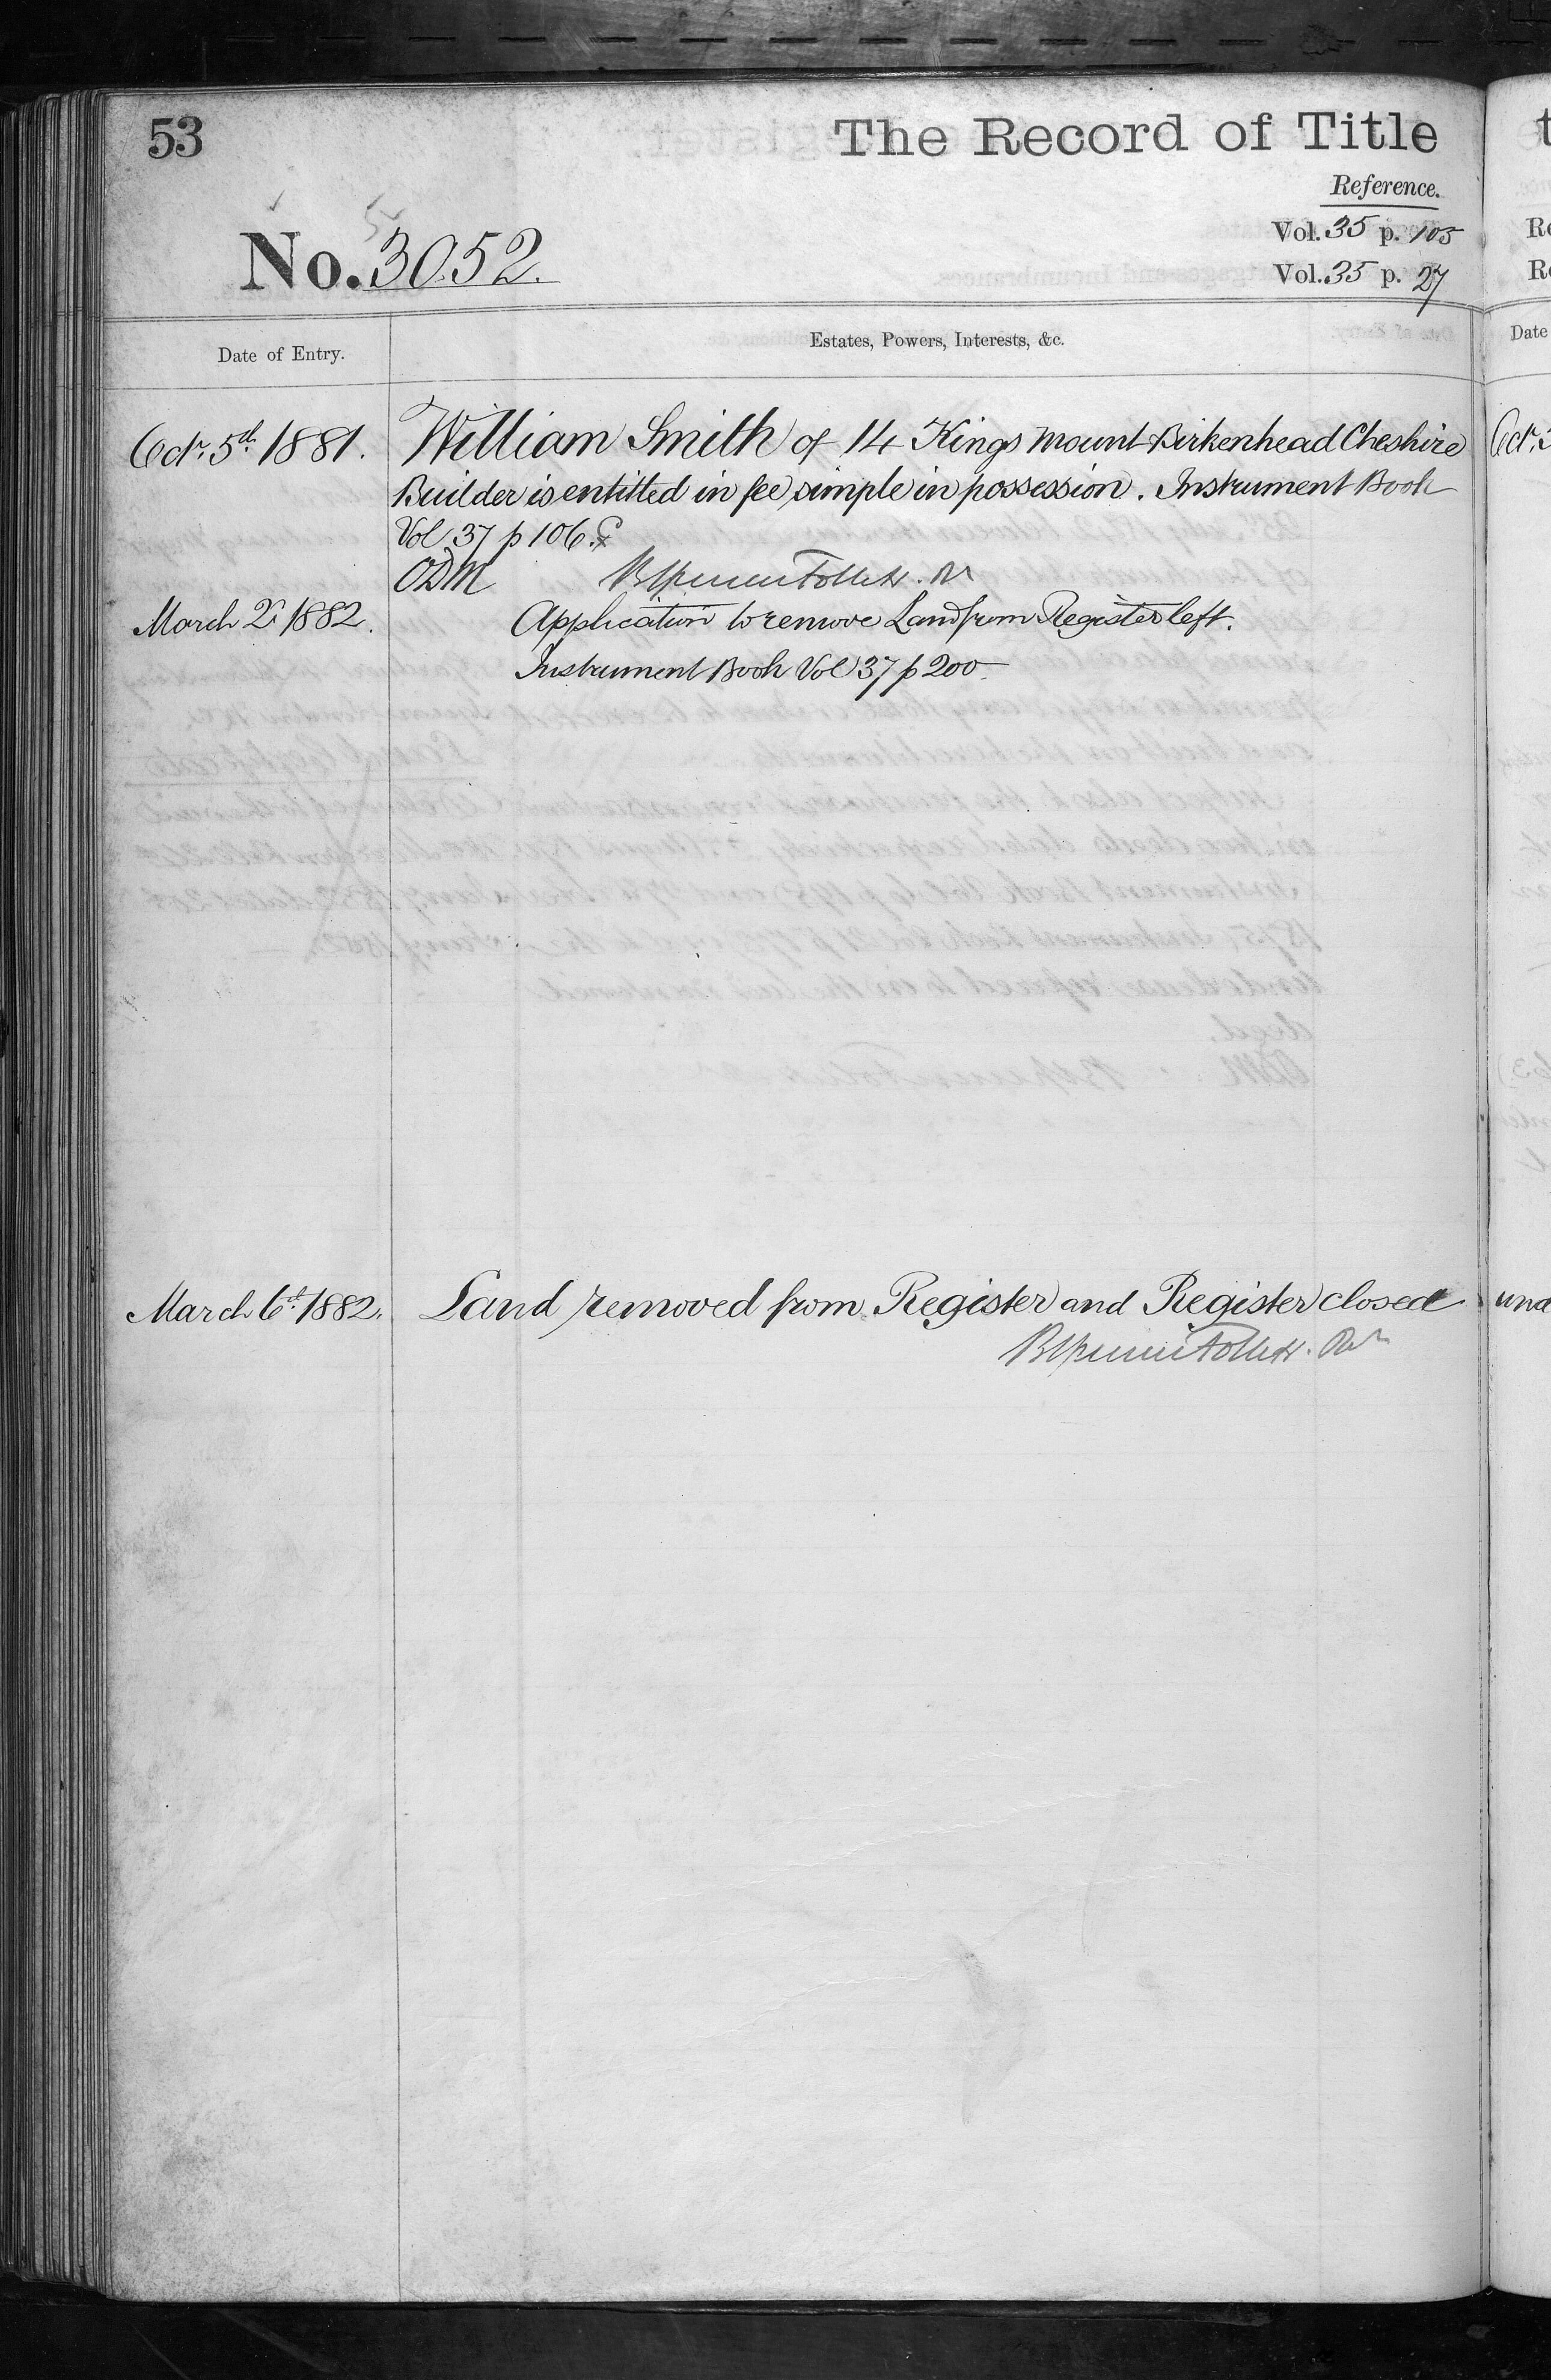 53
The Record of Title
Reference.
Vol. 35 p. 105
No. 3052.
Vol. 35 p. 27
Date of Entry.
Estates, Powers, Interests, &c.
Octr. 5th 1881.
William Smith of 14 Kings Mount Birkenhead Cheshire
Builder is entitled in fee simple in possession. Instrument Book
Vol 37 p 106.
ODM
March 2d 1882.
Application to remove Land from Register left.
Instrument Book Vol 37 p 200.
March 6th 1882.
Land removed from Register and Register closed